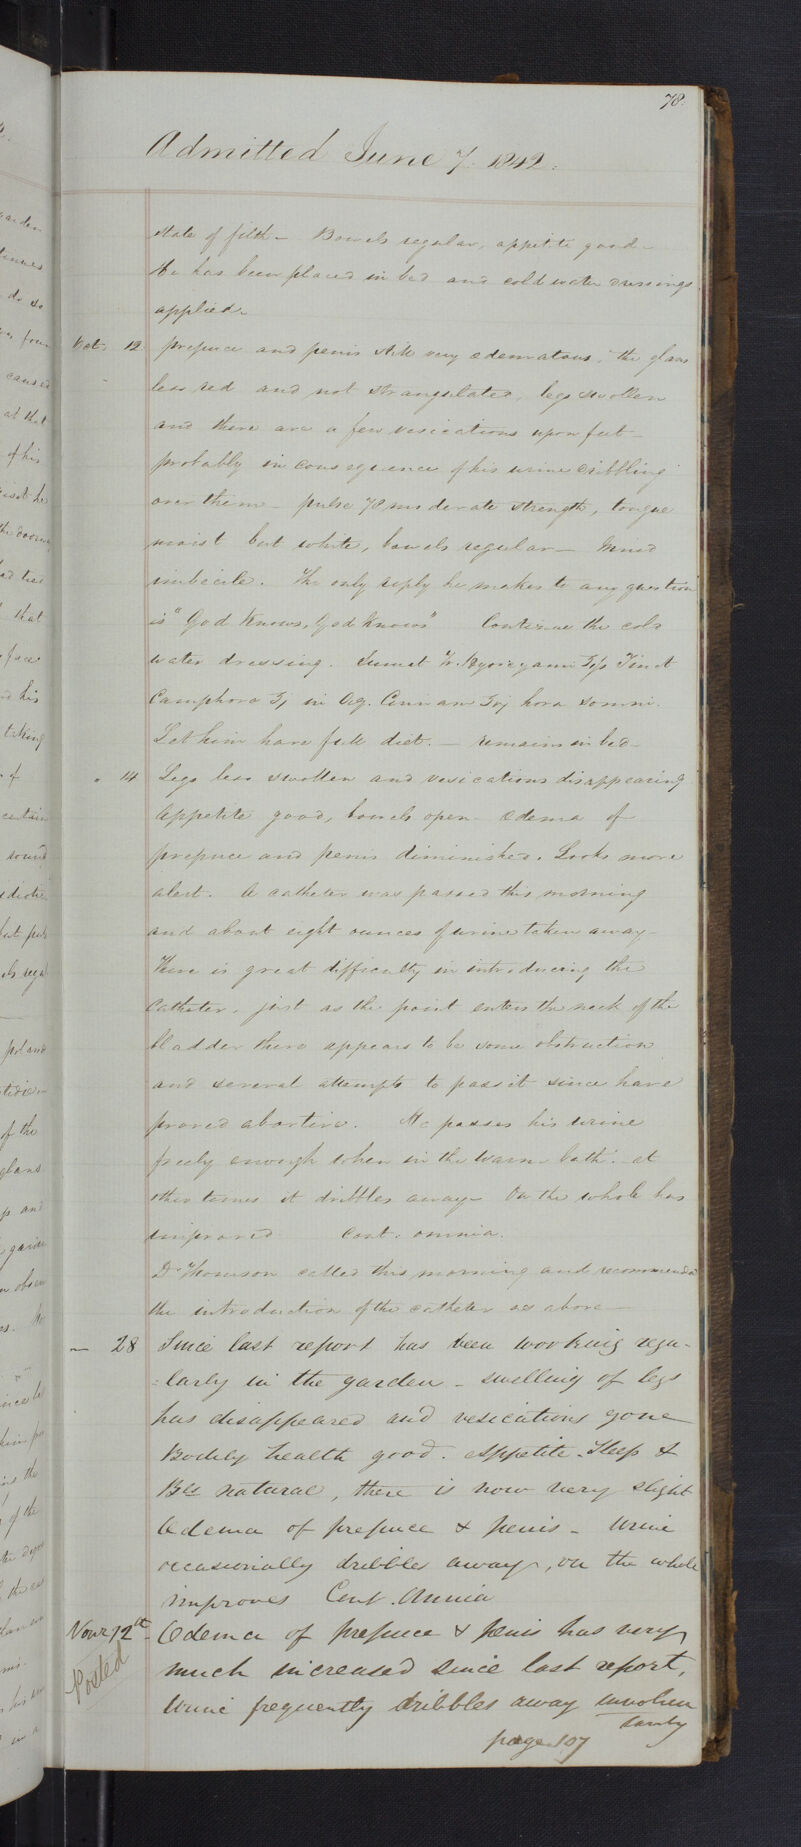 78.
Admitted June 7. 1842.
state of filth – Bowels regular, appetite good –
He has been placed in bed and cold water dressings
applied.
Oct. 12. prepuce and penis still very œdematous, the glans
less red and not strangulated, legs swollen
and there are a few vesications upon feet –
probably in consequence of his urine dribbling
over them – pulse 78 moderate strength, tongue
moist but white, bowels regular – Mind
imbecile. The only reply he makes to any question
is "God knows, God knows" Continue the cold
water dressing. Sumat Tr. Hyoscyami Tinct
Camphora in Aq. hora somni.
Let him have full diet. – remains in bed –
" 14 Legs less swollen and vesications disappearing
Appetite good, bowels open – Œdema of
prepuce and penis diminished. Looks more
alert. A catheter was passed this morning
and about eight ounces of urine taken away –
There is great difficulty in introducing the
Catheter, just as the point enters the neck of the
bladder there appears to be some obstruction
and several attempts to pass it since have
proved abortive. He passes his urine
freely enough when in the warm bath – at
other times it dribbles away – On the whole has
improved Cont. omnia.
Dr Thomson called this morning and recommended
the introduction of the catheter as above –
– 28 Since last report has been working regu-
-larly in the garden – swelling of legs
has disappeared and vesications gone
Bodily health good. Appetite – Sleep &
Bls natural, there is now very slight
Œdema of prepuce & penis – Urine
occasionally dribbles away, on the whole
improves Cont. Omnia
Novr 12th – Œdema of prepuce & penis has very
Posted
much increased since last report,
Urine frequently dribbles away involun
tarily
page 107